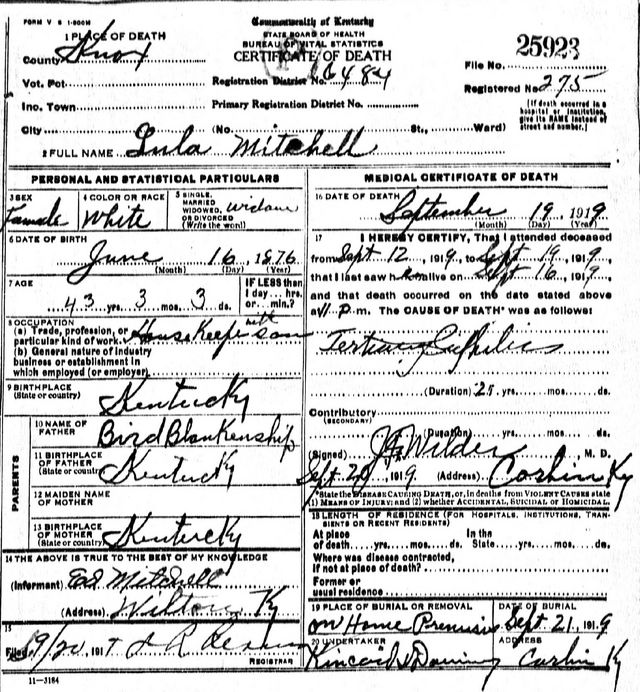 FORM V S 1-500M
Commonwealth of Kentucky
STATE BOARD OF HEALTH
BUREAU OF VITAL STATISTICS
CERTIFICATE OF DEATH
1 PLACE OF DEATH
County Knox
File No. 25923
Vot. Pct
Registration District No. 6484
Registered No 275
Inc. Town
Primary Registration District No.
(If death occurred in a hospital or institution, give its NAME instead of street and number.)
City (No. St., Ward)
2 FULL NAME Lula Mitchell
PERSONAL AND STATISTICAL PARTICULARS
3 SEX Female
4 COLOR OR RACE White
5 SINGLE, MARRIED WIDOWED, OR DIVORCED (Write the word) widow
6 DATE OF BIRTH June 16, 1876
(Month) (Day) (Year)
7 AGE 43 yrs. 3 mos. 3 ds.
IF LESS than 1 day... hrs. or... min.?
8 OCCUPATION
(a) Trade, profession, or particular kind of work House Keeper with son
(b) General nature of industry
business or establishment in
which employed (or employer)
9 BIRTHPLACE
(State or country) Kentucky
PARENTS
10 NAME OF FATHER Bird Blankenship
11 BIRTHPLACE OF FATHER (State or country) Kentucky
12 MAIDEN NAME OF MOTHER
13 BIRTHPLACE OF MOTHER (State or country) Kentucky
14 THE ABOVE IS TRUE TO THE BEST OF MY KNOWLEDGE
(Informant) Ed Mitchell
(Address) Wilton, Ky
15
Filed 9/20, 191
REGISTRAR
11-3184
MEDICAL CERTIFICATE OF DEATH
16 DATE OF DEATH
September 19 1919
(Month) (Day) (Year)
17 I HEREBY CERTIFY, That I attended deceased
from Sept 12, 1919, to Sept 19, 1919,
that I last saw h alive on Sept 16, 1919,
and that death occurred on the date stated above
at 11 P.m. The CAUSE OF DEATH* was as follows:
Tertiary Syphilis
(Duration) 25 yrs. mos. ds.
Contributory
(SECONDARY)
(Duration) yrs. mos. ds.
(Signed) Wilder, M. D.
Sept 20, 1919 (Address) Corbin Ky
*State the DISEASE CAUSING DEATH, or, in deaths from VIOLENT CAUSES state
(1) MEANS OF INJURY; and (2) whether ACCIDENTAL, SUICIDAL or HOMICIDAL.
18 LENGTH OF RESIDENCE (FOR HOSPITALS, INSTITUTIONS, TRANSIENTS OR RECENT RESIDENTS)
At place of death yrs. mos. ds. In the State yrs. mos. ds.
Where was disease contracted,
if not at place of death?
Former or
usual residence
19 PLACE OF BURIAL OR REMOVAL
DATE OF BURIAL
on Home Premises Sept 21, 1919
20 UNDERTAKER
ADDRESS
Corbin Ky